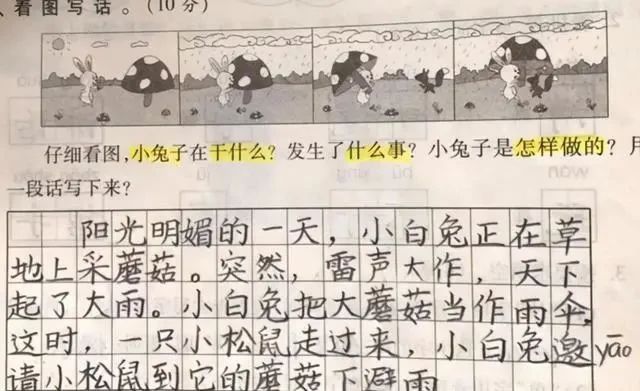 看图写话。（10分）
仔细看图，小兔子在干什么？发生了什么事？小兔子是怎样做的？
一段话写下来？
阳光明媚的一天，小白兔正在草
地上采蘑菇。突然，雷声大作，天下
起了大雨。小白兔把大蘑菇当作雨伞，
这时，一只小松鼠走过来，小白兔邀yāo
请小松鼠到它的蘑菇下避雨